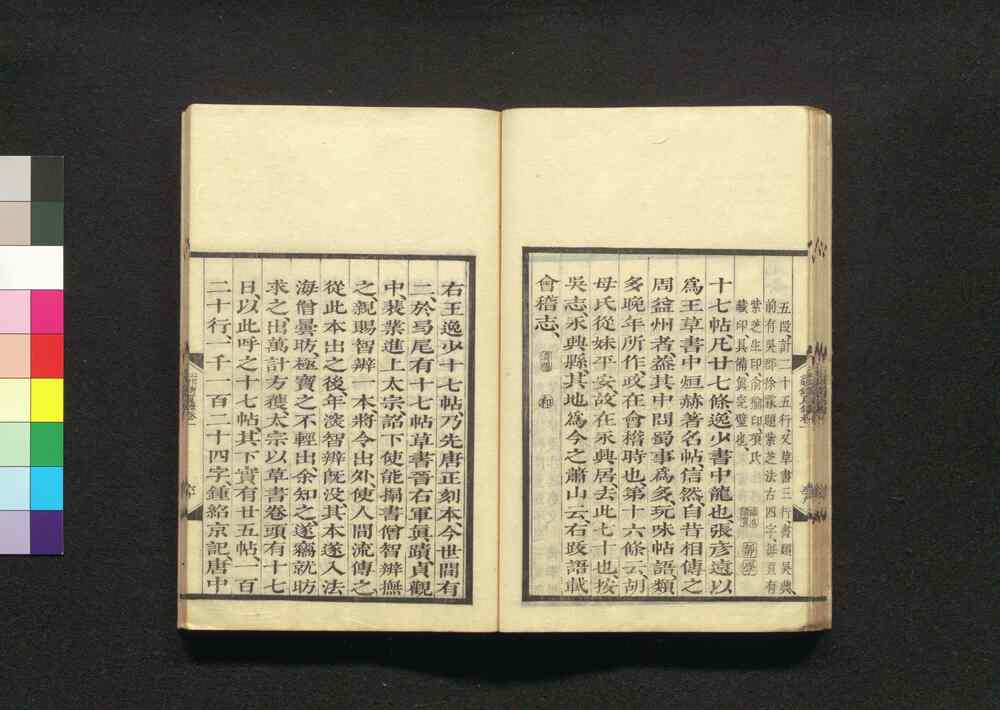 五段計二十五行、又草書三行、書類吳典、
前有吳郡徐霖題紫芝法古四字、每頁有
紫芝生印、俞貌印、項氏
藏印具備、眞完璧也、
十七帖凡廿七條、逸少書中龍也、張彥遠以
爲王草書中烜赫著名帖、信然、自昔相傳之
周益州者、蓋其中問蜀事爲多、玩味帖語、類
多晚年所作、政在會稽時也、第十六條云、胡
母氏從妹平安、故在永興居、去此七十也、按
吳志、永興縣、其地爲今之蕭山云、右跋語載
會稽志、
右王逸少十七帖、乃先唐正刻本、今世間有
二、於曷尾有十七帖草書晉右軍眞蹟、貞觀
中、裴業進上、太宗詔下使能搨書僧智辨撫
之、親賜智辨一本、將令出外、使人間流傳之、
從此本出之後、年深智辨旣没、其本遂入法
海僧曇昉、極寶之不輕出、余知之、遂竊就昉
求之、出萬計方獲、太宗以草書卷頭有十七
日、以此呼之十七帖、其下實有廿五帖、一百
二十行、一千一百二十四字、鍾紹京記、唐中